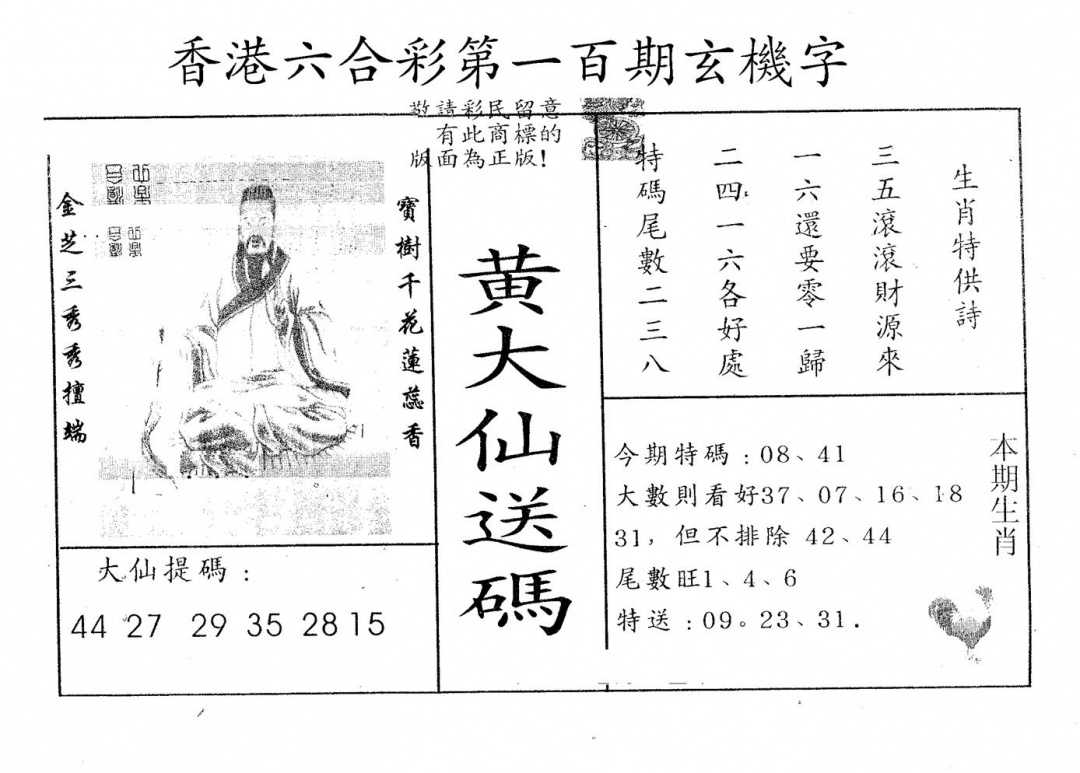 香港六合彩第一百期玄機字
敬請彩民留意
有此商標的
版面為正版!
寶樹千花蓮蕊香
金芝三秀秀擅端
黃大仙送碼
大仙提碼:
44 27 29 35 28 15
生肖特供詩
三五滾滾財源來
一六還要零一歸
二四一六各好處
特碼尾數二三八
本期生肖
今期特碼:08、41
大數則看好37、07、16、18
31,但不排除 42、44
尾數旺1、4、6
特送:09。23、31.